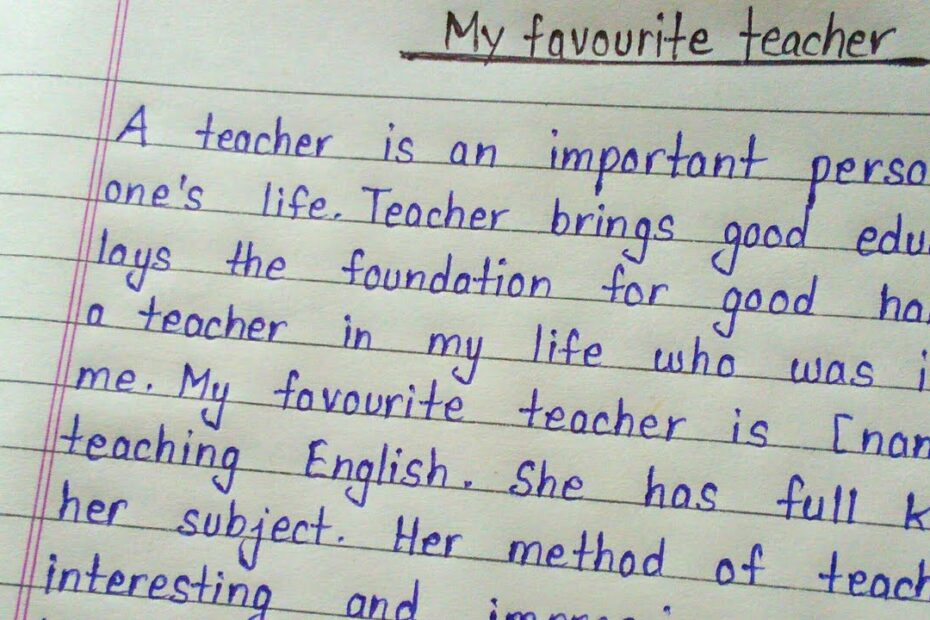 My favourite teacher
A teacher is an important perso
one's life. Teacher brings good edu
lays the foundation for good ha
a teacher in my life who was i
me. My favourite teacher is [nam
teaching English. She has full k
her subject. Her method of teach
interesting and